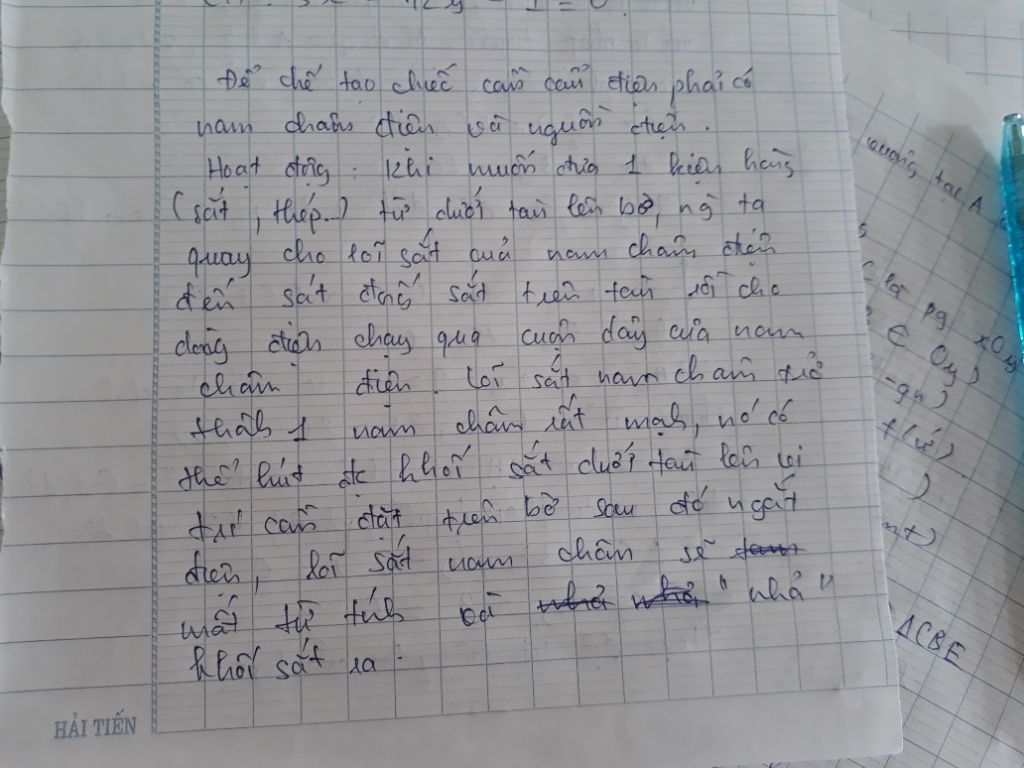 Để chế tạo chiếc cần cẩu điện phải có
nam châm điện và nguồn điện.
Hoạt động: Khi muốn đưa 1 kiện hàng
(sắt, thép..) từ dưới tàu lên bờ, ng ta
quay cho lõi sắt của nam châm điện
đến sát đống sắt trên tàu rồi cho
dòng điện chạy qua cuộn dây của nam
châm điện. Lõi sắt nam châm trở
thành 1 nam châm rất mạnh, nó có
thể hút đc khối sắt dưới tàu lên vị
trí cần đặt trên bờ sau đó ngắt
điện, lõi sắt nam châm sẽ
mất từ tính và "nhả"
khối sắt ra.
HẢI TIẾN
quãng tại A
pg
xOy
∈ Oy)
-gn)
ΔCBE